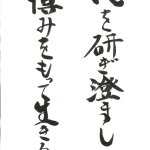 を研ぎ澄まし
慎みをもって生きる